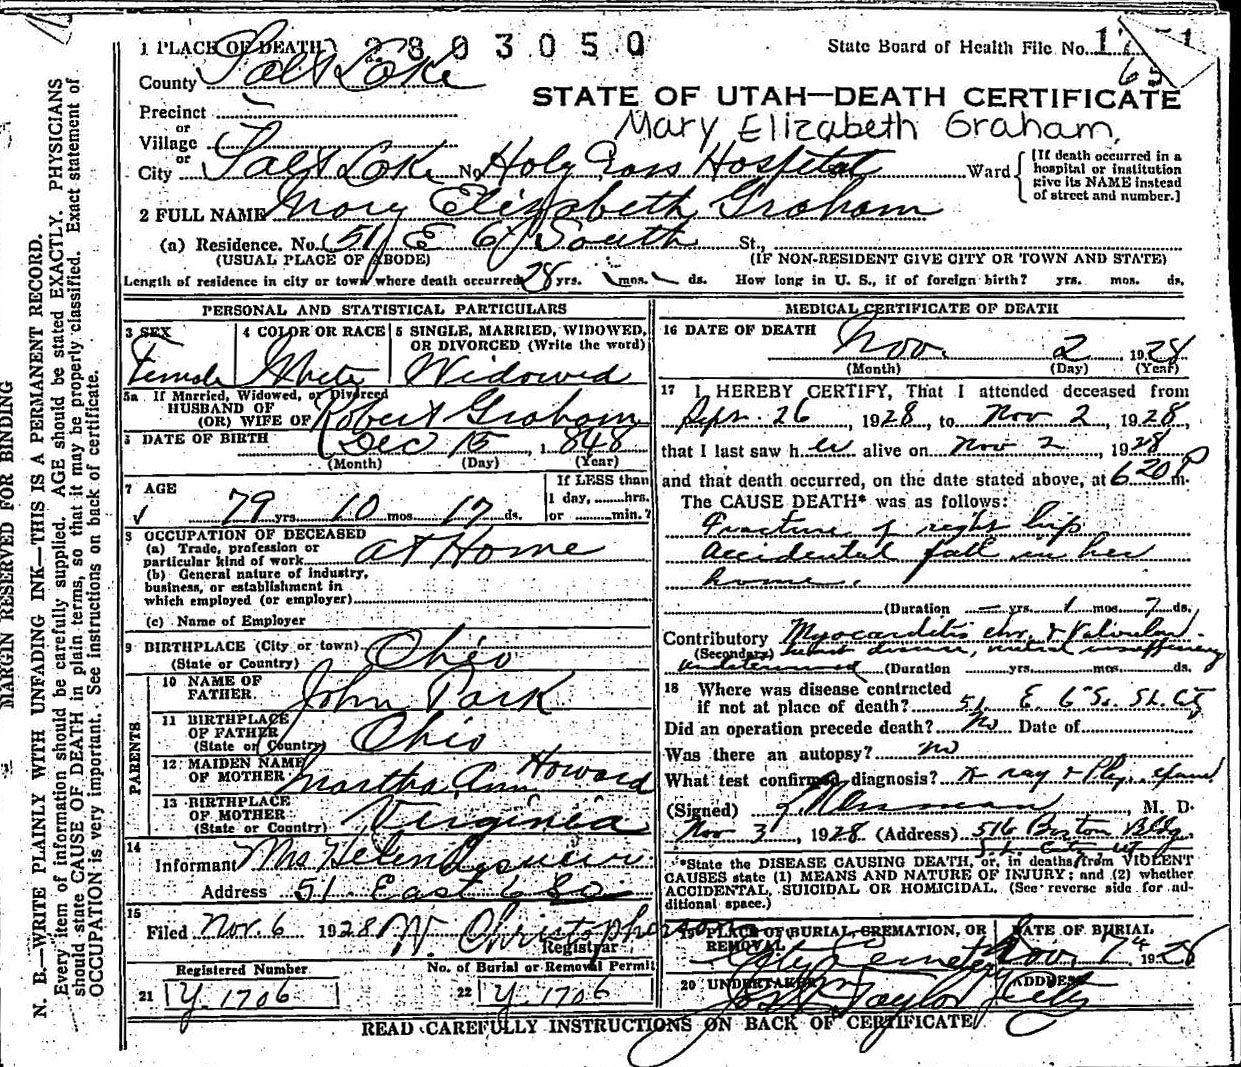 1 PLACE OF DEATH 2803050
State Board of Health File No.
65
County Salt Lake
STATE OF UTAH—DEATH CERTIFICATE
Precinct
or
Mary Elizabeth Graham,
Village
or
City Salt Lake No. Holy Cross Hospital Ward [If death occurred in a hospital or institution give its NAME instead of street and number.]
2 FULL NAME Mary Elizabeth Graham
(a) Residence. No. 51 E 6 South St.,
(USUAL PLACE OF ABODE) (IF NON-RESIDENT GIVE CITY OR TOWN AND STATE)
Length of residence in city or town where death occurred 28 yrs. mos. ds. How long in U. S., if of foreign birth? yrs. mos. ds.
PERSONAL AND STATISTICAL PARTICULARS
3 SEX
Female
4 COLOR OR RACE
White
5 SINGLE, MARRIED, WIDOWED,
OR DIVORCED (Write the word)
Widowed
5a If Married, Widowed, or Divorced
HUSBAND OF
(OR) WIFE OF Robert Graham
6 DATE OF BIRTH Dec 15, 1848
(Month) (Day) (Year)
7 AGE
79 yrs. 10 mos. 17 ds.
If LESS than
1 day, hrs.
or min.?
8 OCCUPATION OF DECEASED
(a) Trade, profession or
particular kind of work at Home
(b) General nature of industry,
business, or establishment in
which employed (or employer)
(c) Name of Employer
9 BIRTHPLACE (City or town)
(State or Country) Ohio
PARENTS
10 NAME OF
FATHER John Park
11 BIRTHPLACE
OF FATHER
(State or Country) Ohio
12 MAIDEN NAME
OF MOTHER Martha Ann Howard
13 BIRTHPLACE
OF MOTHER
(State or Country) Virginia
14
Informant Mrs Helen
Address 51 East 6 So
15
Filed Nov. 6 1928 W Christopherson
Registrar
Registered Number
21 Y-1706
No. of Burial or Removal Permit
22 Y-1706
MEDICAL CERTIFICATE OF DEATH
16 DATE OF DEATH
Nov. 2, 1928
(Month) (Day) (Year)
17 I HEREBY CERTIFY, That I attended deceased from
Sept. 26, 1928, to Nov 2, 1928,
that I last saw her alive on Nov 2, 1928
and that death occurred, on the date stated above, at 6 20 P m.
The CAUSE DEATH* was as follows:
Fracture of right hip
accidental fall in her
home.
(Duration — yrs. 1 mos. 7 ds.
Contributory Myocarditis chr. & Valvular
(Secondary) heart disease, mitral insufficiency
undetermined (Duration yrs. mos. ds.
18 Where was disease contracted
if not at place of death? 51 E. 6 So. St. City
Did an operation precede death? No Date of
Was there an autopsy? no
What test confirmed diagnosis? X ray & Phy. exam
(Signed) M. D.
Nov 3, 1928 (Address) 516 Boston Bldg.
*State the DISEASE CAUSING DEATH, or, in deaths from VIOLENT
CAUSES state (1) MEANS AND NATURE OF INJURY; and (2) whether
ACCIDENTAL, SUICIDAL OR HOMICIDAL. (See reverse side for additional space.)
19 PLACE OF BURIAL, CREMATION, OR
REMOVAL
City Cemetery
DATE OF BURIAL
Nov. 7 1928
20 UNDERTAKER
Taylor
ADDRESS
City
READ CAREFULLY INSTRUCTIONS ON BACK OF CERTIFICATE
MARGIN RESERVED FOR BINDING
N. B.—WRITE PLAINLY WITH UNFADING INK—THIS IS A PERMANENT RECORD.
Every item of information should be carefully supplied. AGE should be stated EXACTLY. PHYSICIANS
should state CAUSE OF DEATH in plain terms, so that it may be properly classified. Exact statement of
OCCUPATION is very important. See instructions on back of certificate.